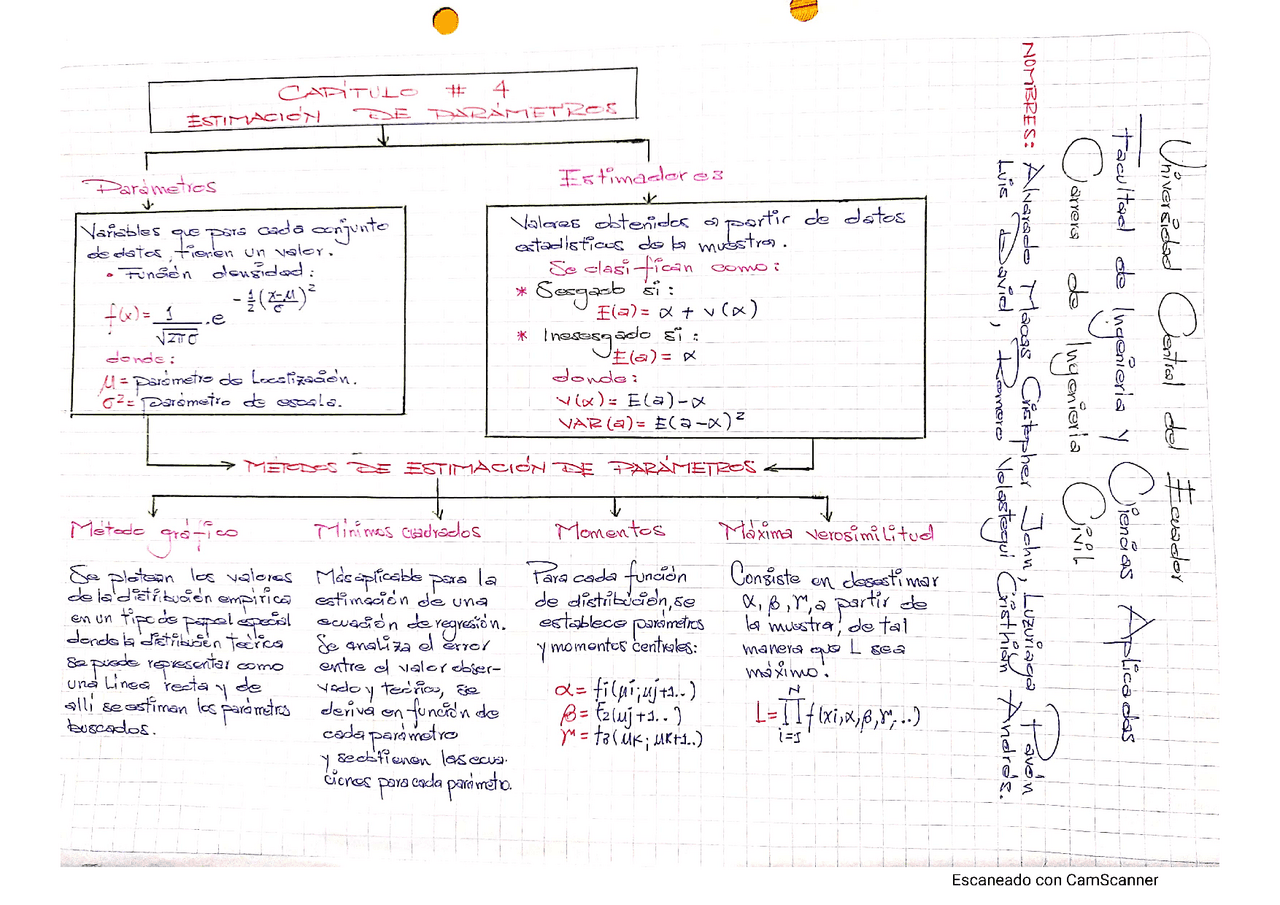 CAPÍTULO # 4
ESTIMACIÓN DE PARÁMETROS
Parámetros
Variables que para cada conjunto
de datos, tienen un valor.
• Función densidad:
f(x)= 1/√2πσ .e^-½(x-μ/σ)²
donde:
μ= parámetro de Localización.
σ²= parámetro de escala.
Estimadores
Valores obtenidos a partir de datos
estadísticos de la muestra.
Se clasifican como:
* Sesgado si:
E(a)= α + v(α)
* Insesgado si:
E(a)= α
donde:
v(α)= E(a)-α
VAR(a)= E(a-α)²
MÉTODOS DE ESTIMACIÓN DE PARÁMETROS
Método gráfico
Se plotean los valores
de la distribución empírica
en un tipo de papel especial
donde la distribución teórica
se puede representar como
una Línea recta y de
allí se estiman los parámetros
buscados.
Mínimos cuadrados
Más aplicable para la
estimación de una
ecuación de regresión.
Se analiza el error
entre el valor obser-
vado y teórico, se
deriva en función de
cada parámetro
y se obtienen las ecua-
ciones para cada parámetro.
Momentos
Para cada función
de distribución, se
establece parámetros
y momentos centrales:
α= f1(μi; μj+1..)
β= f2(μj+1..)
γ= f3(μk; μk+1..)
Máxima verosimilitud
Consiste en desestimar
α, β, γ, a partir de
la muestra, de tal
manera que L sea
máximo.
L= N∏i=1 f(xi,α,β,γ,...)
Universidad Central del Ecuador
Facultad de Ingeniería y Ciencias Aplicadas
Carrera de Ingeniería Civil
NOMBRES: Alvarado Macas Cristopher John, Luzuriaga Pavón
Luis David, Romero Velastegui Cristhian Andrés.
Escaneado con CamScanner